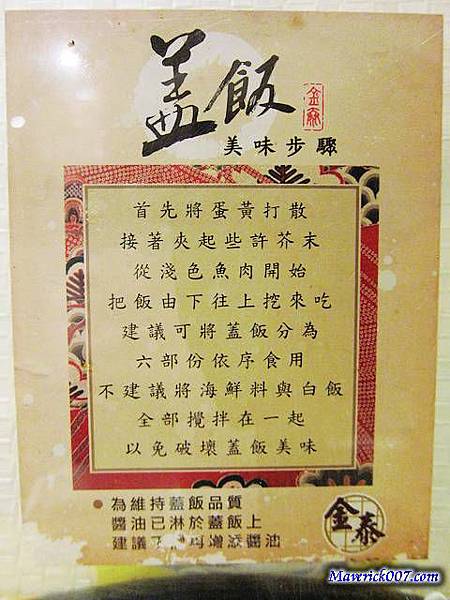 蓋飯
金泰
美味步驟
首先將蛋黃打散
接著夾起些許芥末
從淺色魚肉開始
把飯由下往上挖來吃
建議可將蓋飯分為
六部份依序食用
不建議將海鮮料與白飯
全部攪拌在一起
以免破壞蓋飯美味
為維持蓋飯品質
醬油已淋於蓋飯上
建議 再增添醬油
金泰
Maverick007.com